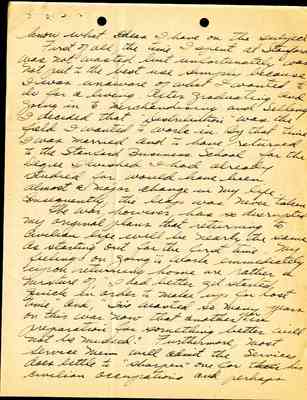 know what ideas I have on the subject.
First of all, the time I spent at Stanford
was not wasted but unfortunately was
not put to the best use simply because
I was unaware of what I wanted to
do for a living. Later graduating and
going in to merchandising and selling
I decided that "distribution" was the
field I wanted to work in. By that time
I was married and to have returned
to the Stanford Business School for the
degree I wished I had already
studied for would have been
almost a major change in my life.
Consequently, the step was never taken.
The war however has so disrupted
my original plans that returning to
civilian life will be nearly the same
as starting out for the first time. My
feelings on going to work immediately
upon returning home are rather a
mixture of "I had better get started
quick in order to make up for lost
time" and "I've wasted so many years
on this war now that another
preparation for something better will
not be missed". Furthermore, most
service men will admit the Services
does little to "sharpen" one for their
civilian occupations and perhaps